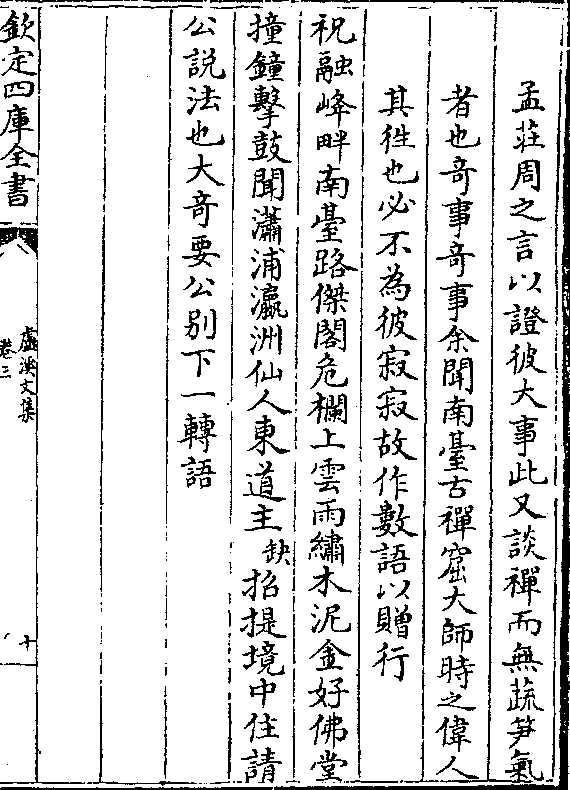 孟莊周之言以證彼大事此又談禪而無蔬笋氣
者也竒事竒事余聞南臺古禪窟大師時之偉人
其徃也必不為彼寂寂故作數語以贈行
祝融峰畔南臺路傑閣危欄上雲雨繡木泥金好佛堂
撞鐘擊鼓聞瀟浦瀛洲仙人東道主缺招提境中住請
公説法也大竒要公别下一轉語
欽定四庫全書
盧溪文集
卷三
十